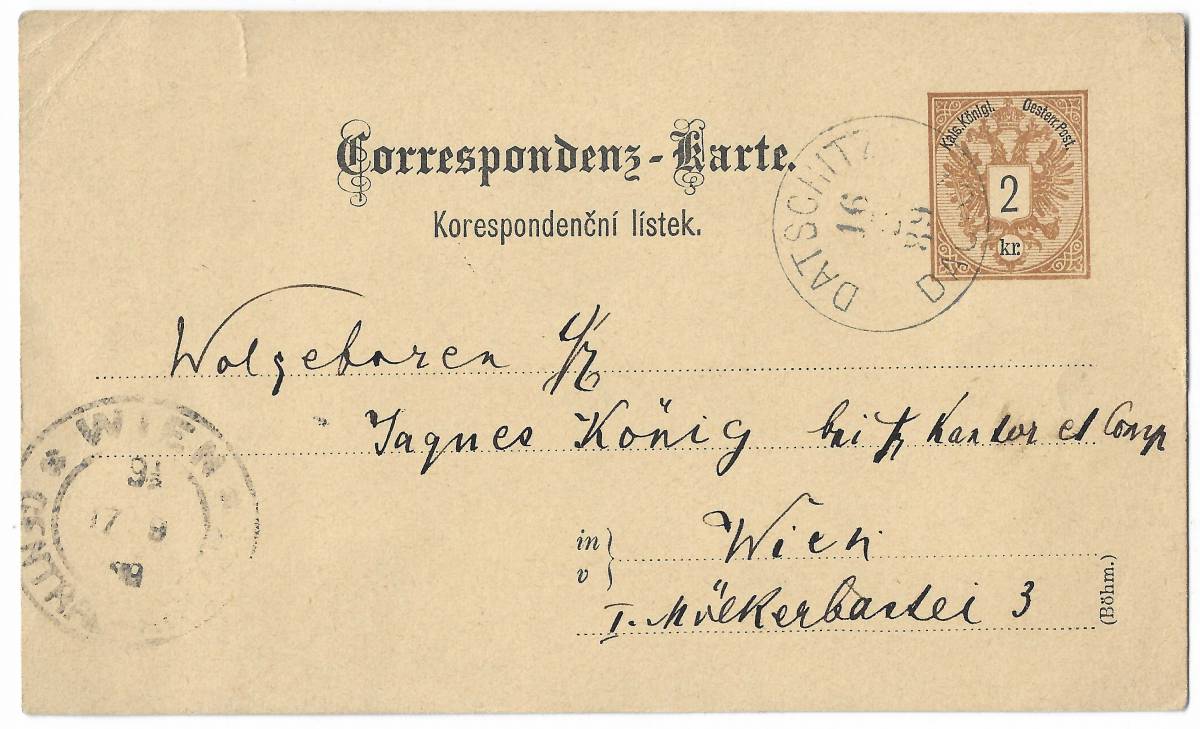 Kais. Königl. Oesterr. Post.
2
kr.
Correspondenz-Karte.
Korespondenční lístek.
DATSCHITZ
16
89
DAČ
Wolgeboren
Jaques König bei Kantor et Comp
in
v
Wien
I. Mölkerbastei 3
(Böhm.)
WIEN
17 8